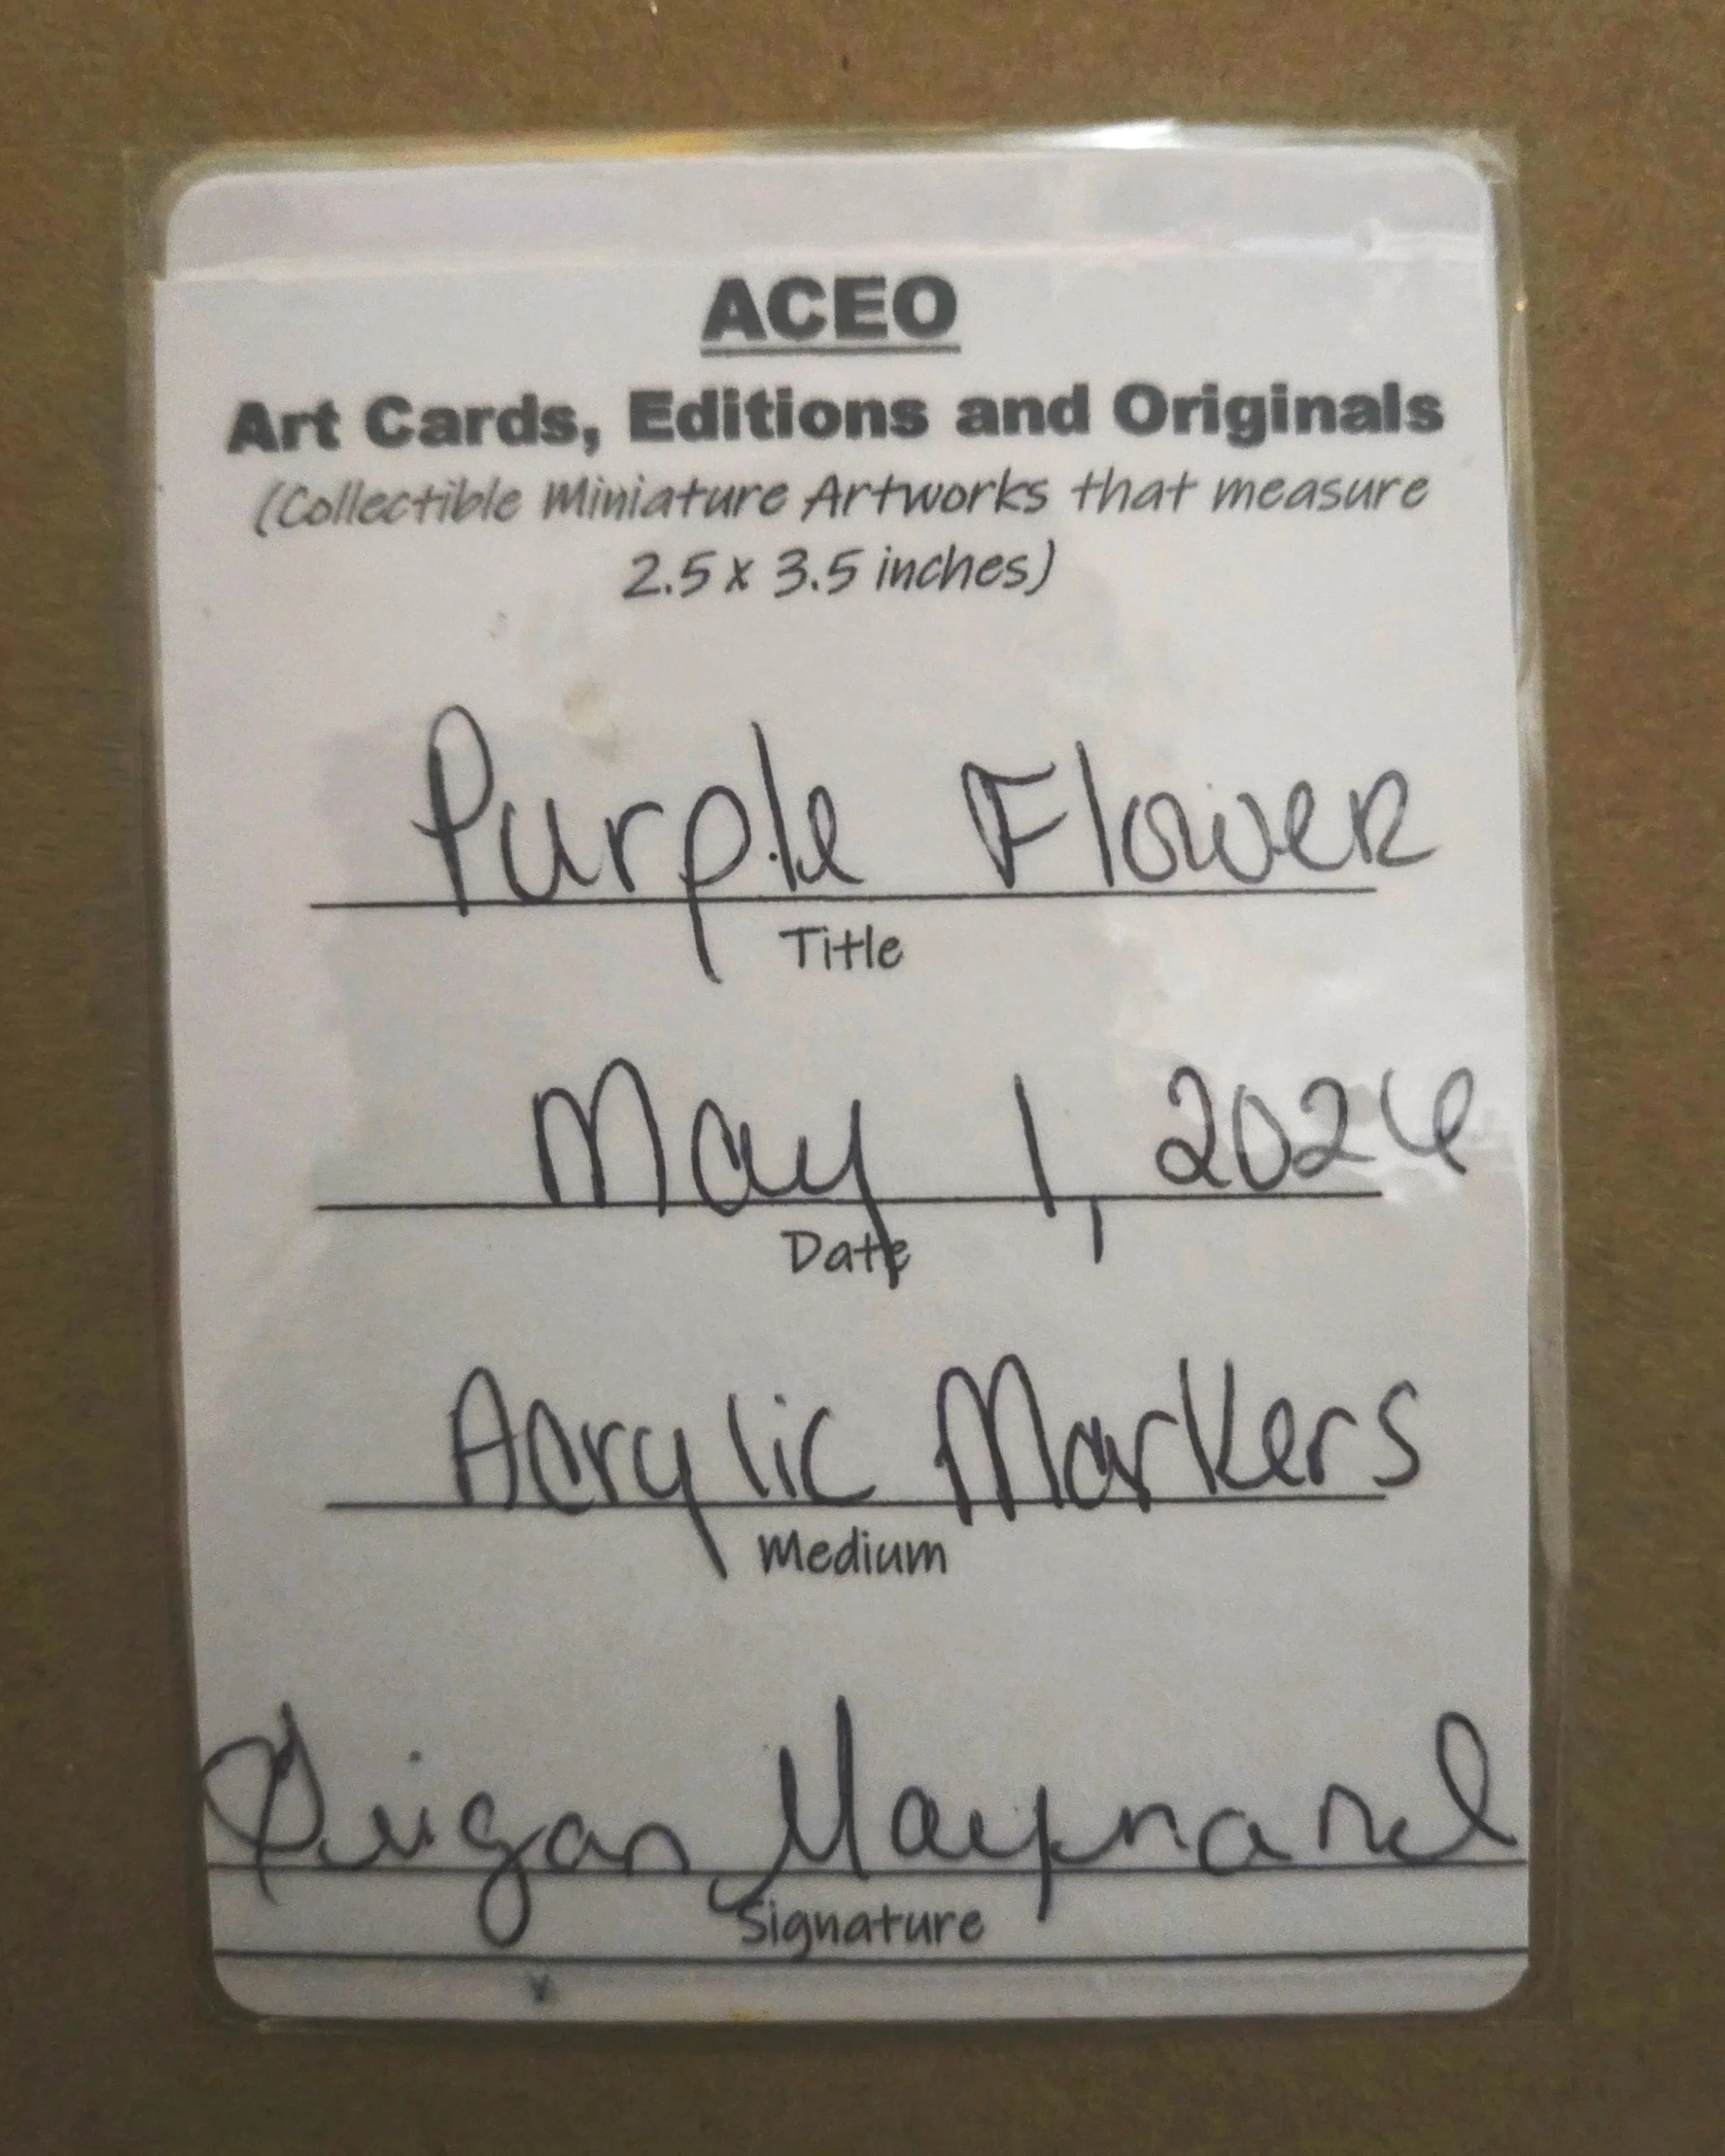 ACEO
Art Cards, Editions and Originals
(Collectible Miniature Artworks that measure
2.5 x 3.5 inches)
Purple Flower
Title
May 1, 2024
Date
Acrylic Markers
Medium
Maynard
Signature